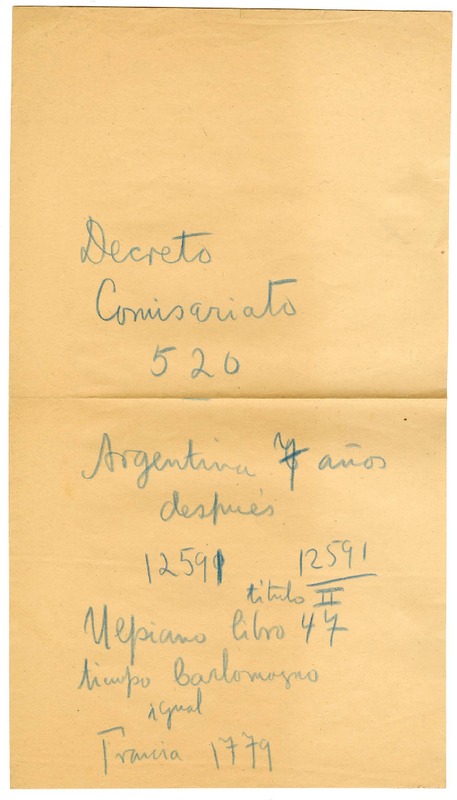 Decreto
Comisariato
520
Argentina 7 años
después
12591 12591
título II
Ulpiano libro 47
tiempo Carlomagno
igual
Francia 1779